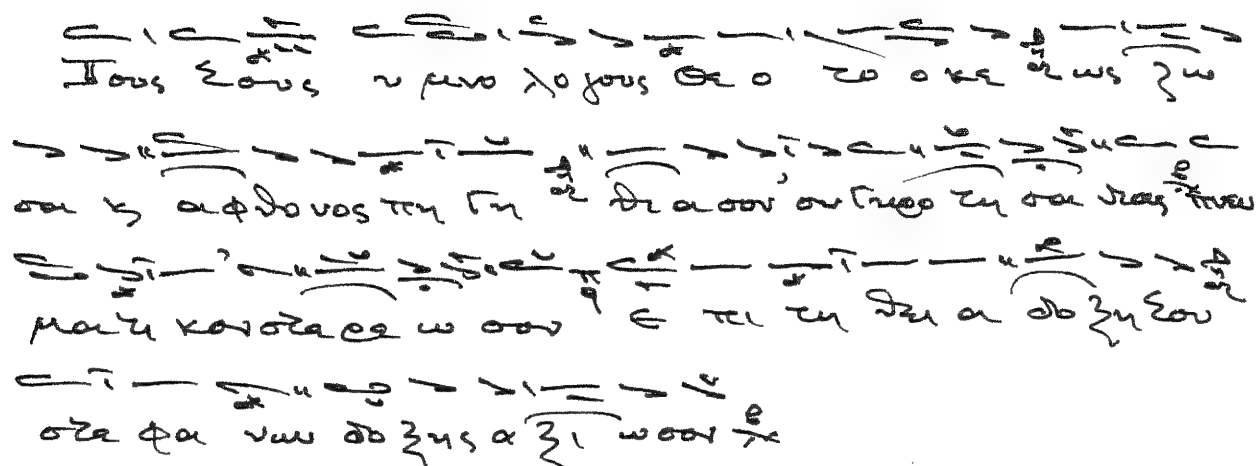 Τους Σους υ μνο λο γους Θε ο το ο κε ως ζω
σα ϗ α φθο νος πη γη θι α σον συγκρο τη σα ντας πνευ
μα τι κον στε ρε ω σον Ε πι τη θει α δο ξη Σου
στε φα νων δο ξης α ξι ω σον